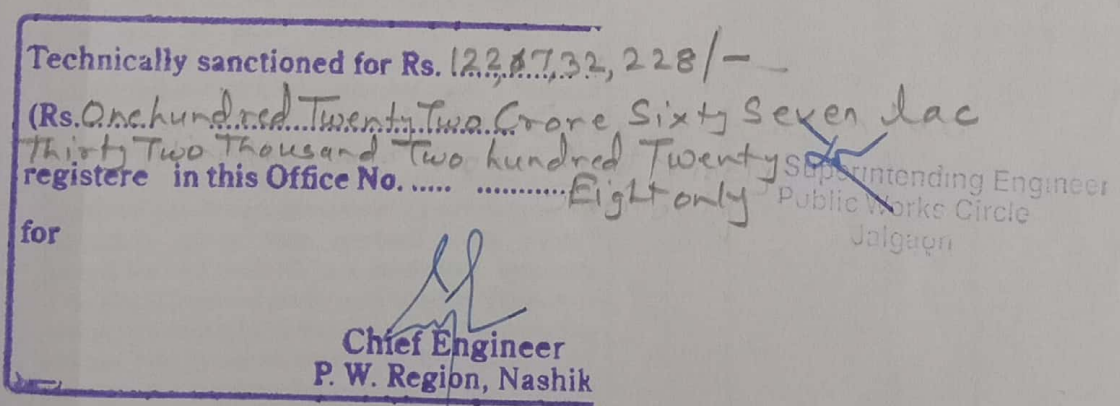 Technically sanctioned for Rs. 122,67,32,228/-
(Rs. One hundred Twenty Two Crore Sixty Seven lac
Thirty Two Thousand Two hundred Twenty
registere in this Office No. ..... ........... Eight only
Superintending Engineer
Public Works Circle
Jalgaon
for
Chief Engineer
P. W. Region, Nashik